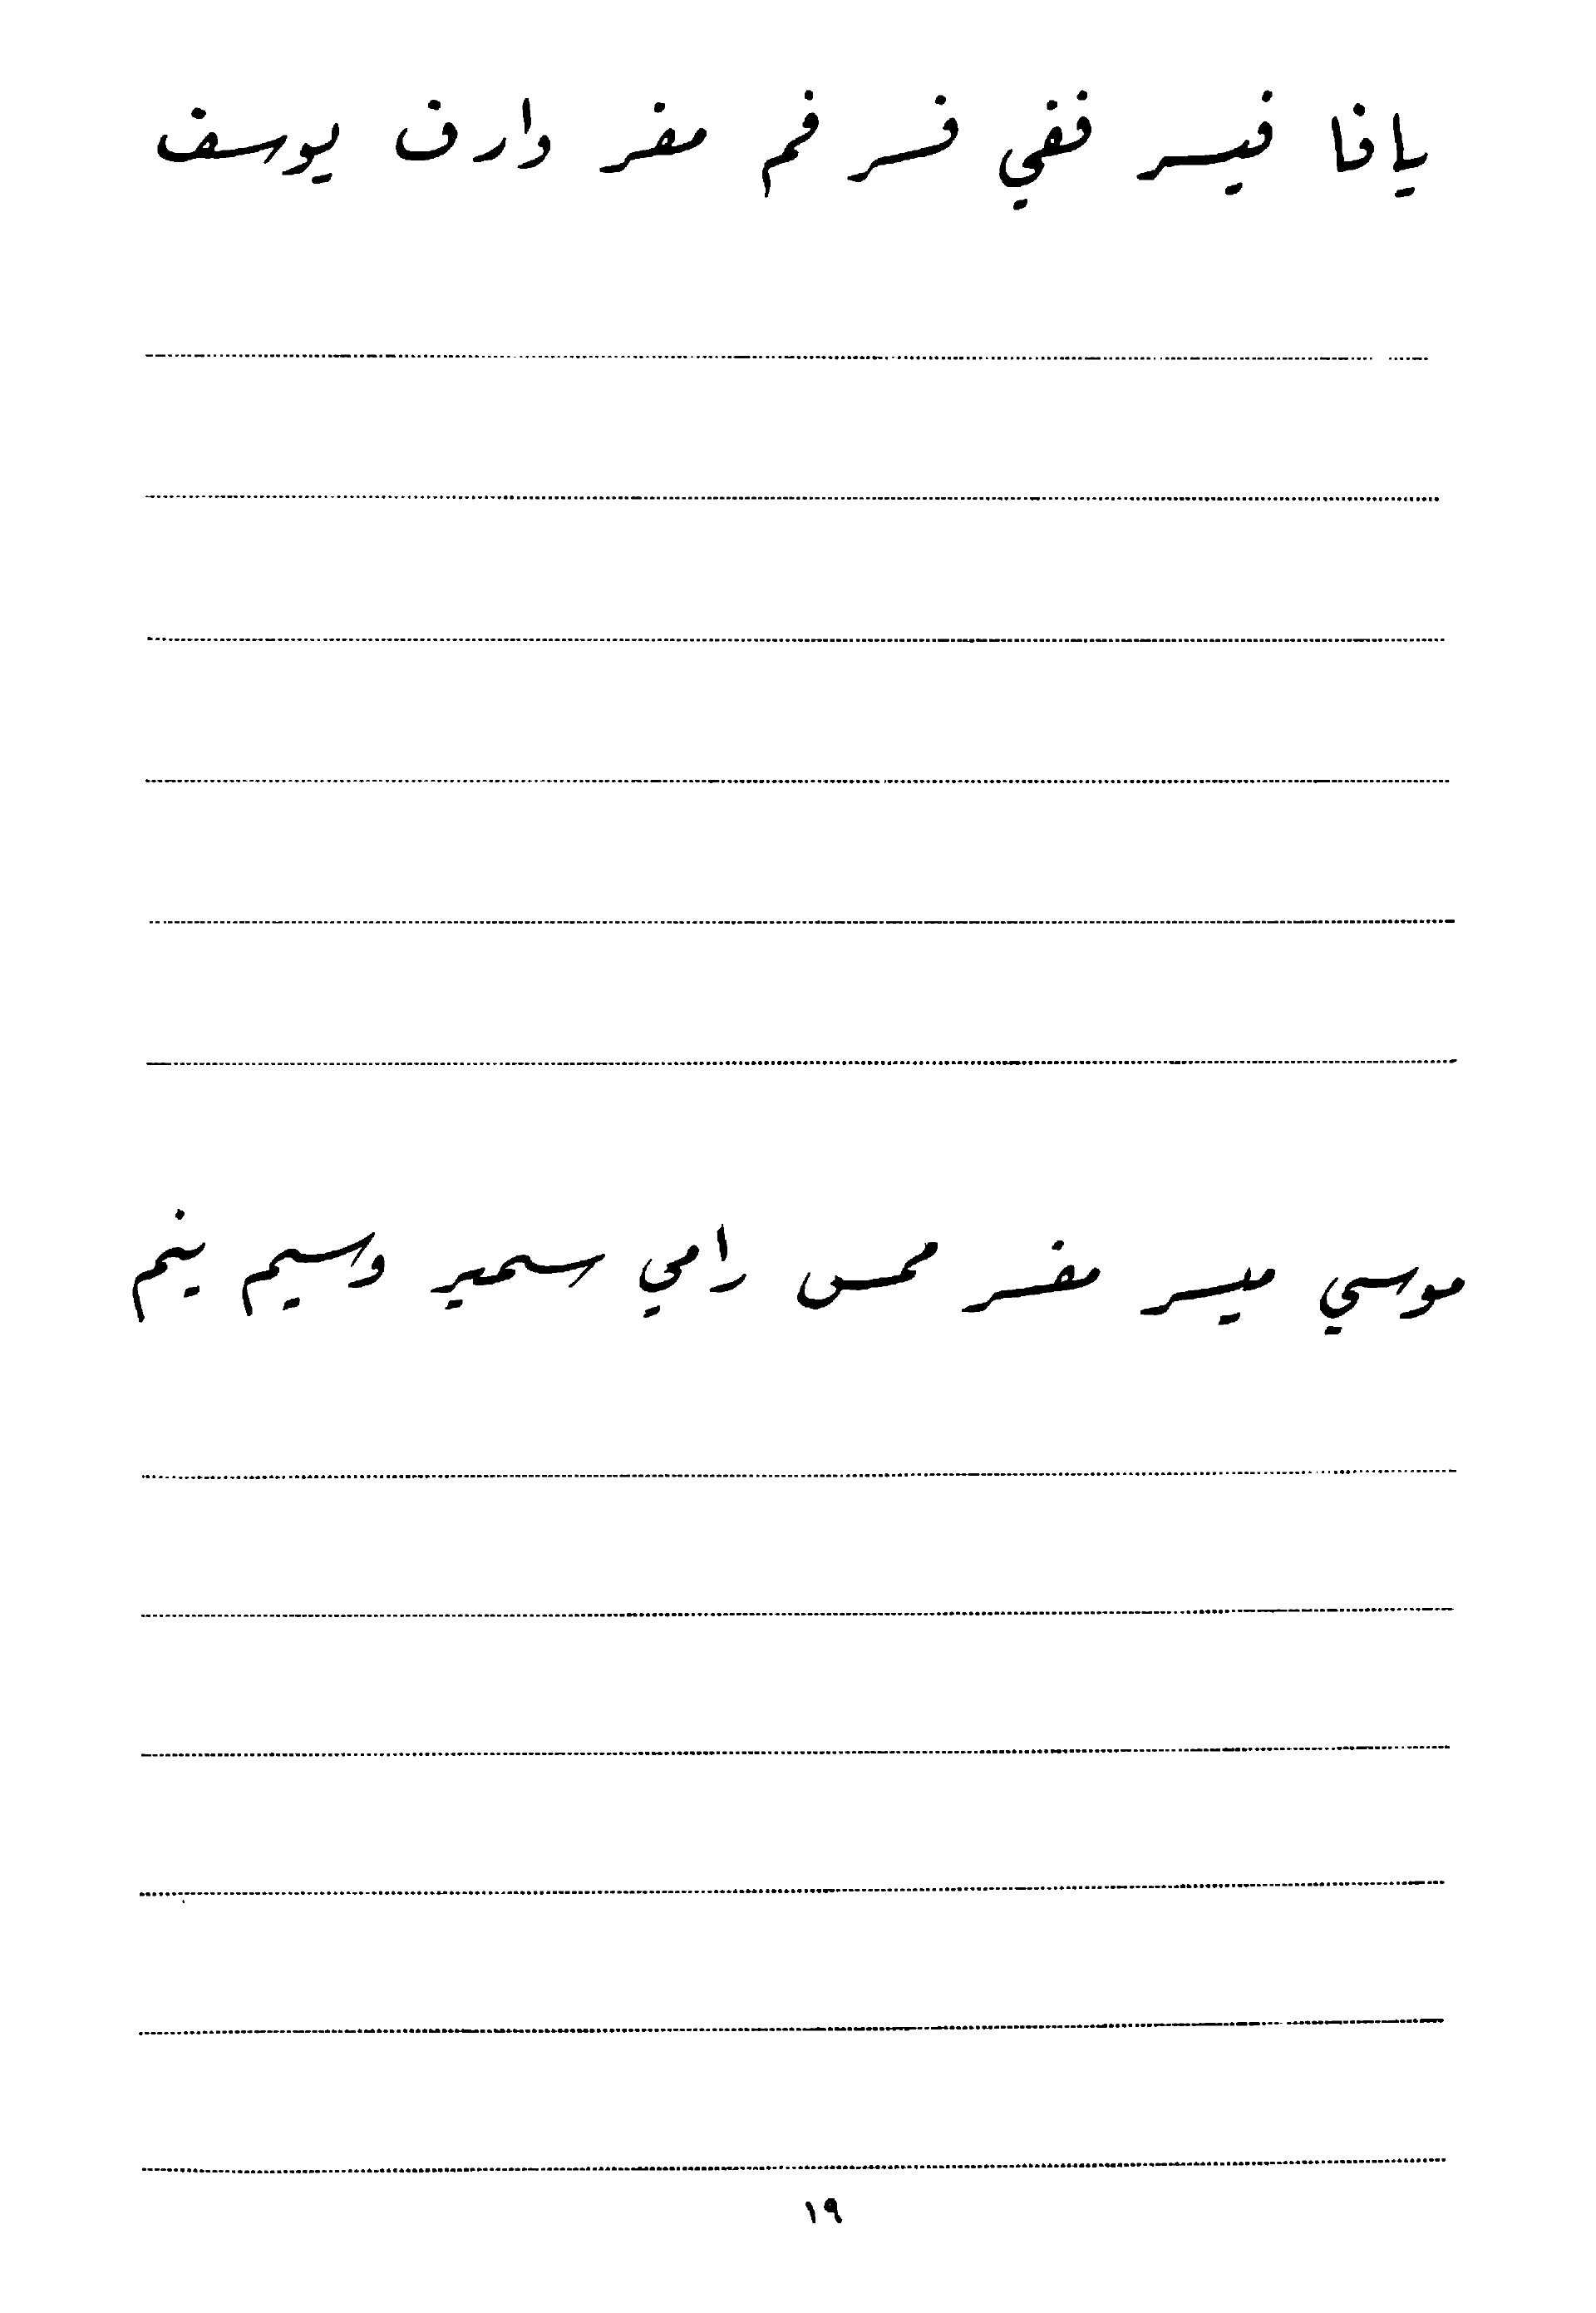 يافا فيسر ففي فسر فم مفر وارف يوسف
موسي ميسر مفسر محمس رامي سمير وسيم ينم
١٩